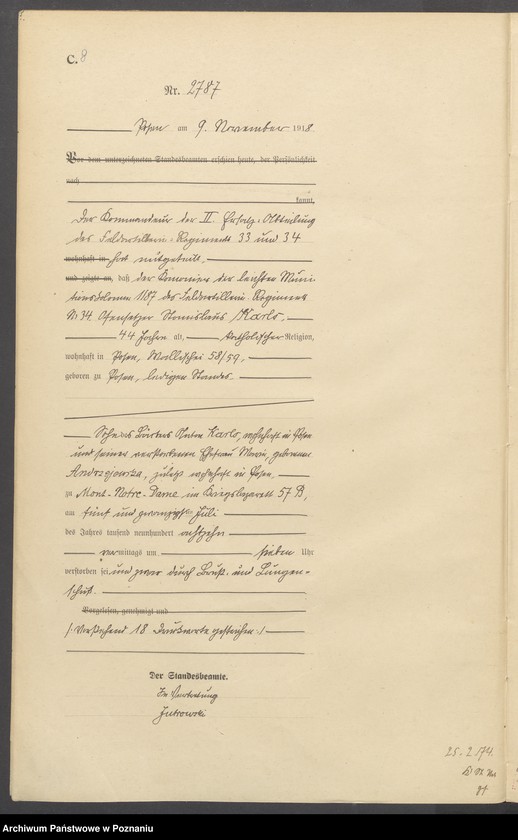 C. 8
Nr. 2787
Posen am 9. November 1918
Vor dem unterzeichneten Standesbeamten erschien heute, der Persönlichkeit
nach
kannt,
Der Kommandeur der II. Ersatz-Abteilung
des Feldartillerie-Regiments 33 und 34
wohnhaft in hat mitgeteilt,
und zeigte an, daß der Kanonier der leichten Muni-
tionskolonne 1187 des Feldartillerie-Regiments
Nr. 34. Ofensetzer Stanislaus Karls,
44 Jahre alt, katholischer Religion,
wohnhaft in Posen, Wallischei 58/59,
geboren zu Posen, ledigen Standes.
Sohn des Bäckers Anton Karls, wohnhaft in Posen
und seiner verstorbenen Ehefrau Marie, geborenen
Andrzejewska, zuletzt wohnhaft in Posen,
zu Mont-Notre-Dame im Kriegslazarett 57 B,
am fünf und zwanzigsten Juli
des Jahres tausend neunhundert achtzehn
vormittags um sieben Uhr
verstorben sei, und zwar durch Brust- und Lungen-
schuß.
Vorgelesen, genehmigt und
/: Vorstehend 18 Druckworte gestrichen :/
Der Standesbeamte.
In Vertretung
Jutrowski
25-2 174.
Archiwum Państwowe w Poznaniu